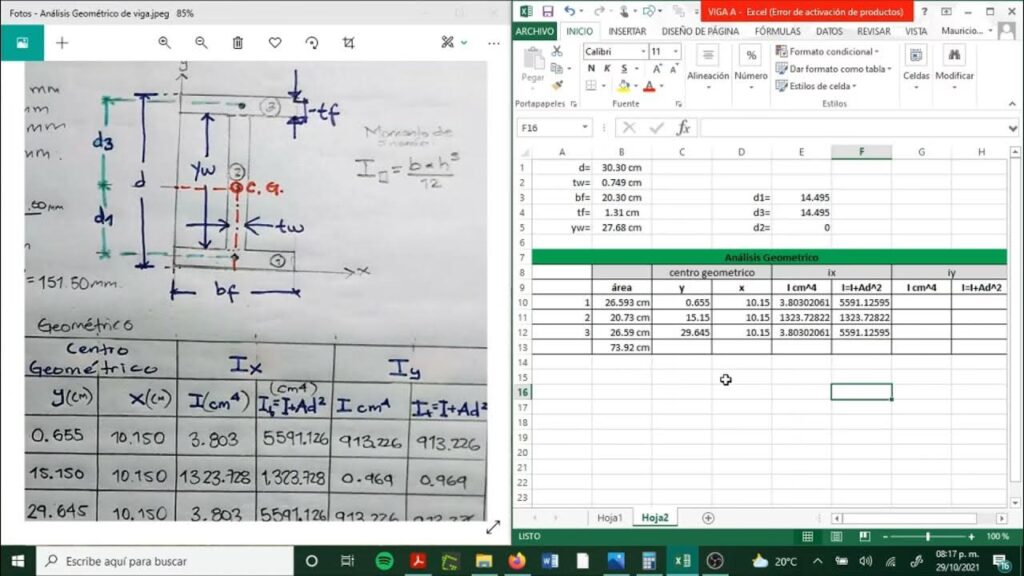 Fotos - Análisis Geométrico de viga.jpeg 85%
mm
mm
mm
mm.
.60mm
=151.50mm.
y
d3
d
d1
yw
tf
tw
bf
x
C.G.
1
2
3
Momento de
I = b*h³
12
Geométrico
Centro
Geométrico
Ix
Iy
y(cm)
x(cm)
I(cm⁴)
(cm⁴)
I=I+Ad²
I cm⁴
I=I+Ad²
0.655 10.150 3.803 5591.126 913.226 913.226
15.150 10.150 1323.728 1,323.728 0.969 0.969
29.645 10.150 3.803 5591.126 913.226
VIGA A - Excel (Error de activación de productos)
ARCHIVO INICIO INSERTAR DISEÑO DE PÁGINA FÓRMULAS DATOS REVISAR VISTA Mauricio...
Pegar
Calibri 11
N K S
Alineación
Número
Formato condicional
Dar formato como tabla
Estilos de celda
Celdas
Modificar
Portapapeles Fuente Estilos
F16
fx
A B C D E F G H
1 d= 30.30 cm
2 tw= 0.749 cm
3 bf= 20.30 cm d1= 14.495
4 tf= 1.31 cm d3= 14.495
5 yw= 27.68 cm d2= 0
6
7 Análisis Geometrico
8 centro geometrico ix iy
9 área y x I cm^4 I=I+Ad^2 I cm^4 I=I+Ad^2
10 1 26.593 cm 0.655 10.15 3.80302061 5591.12595
11 2 20.73 cm 15.15 10.15 1323.72822 1323.72822
12 3 26.59 cm 29.645 10.15 3.80302061 5591.12595
13 73.92 cm
14
15
16
17
18
19
20
21
22
23
Hoja1 Hoja2
LISTO
100 %
Escribe aquí para buscar
20°C
08:17 p. m.
29/10/2021
16